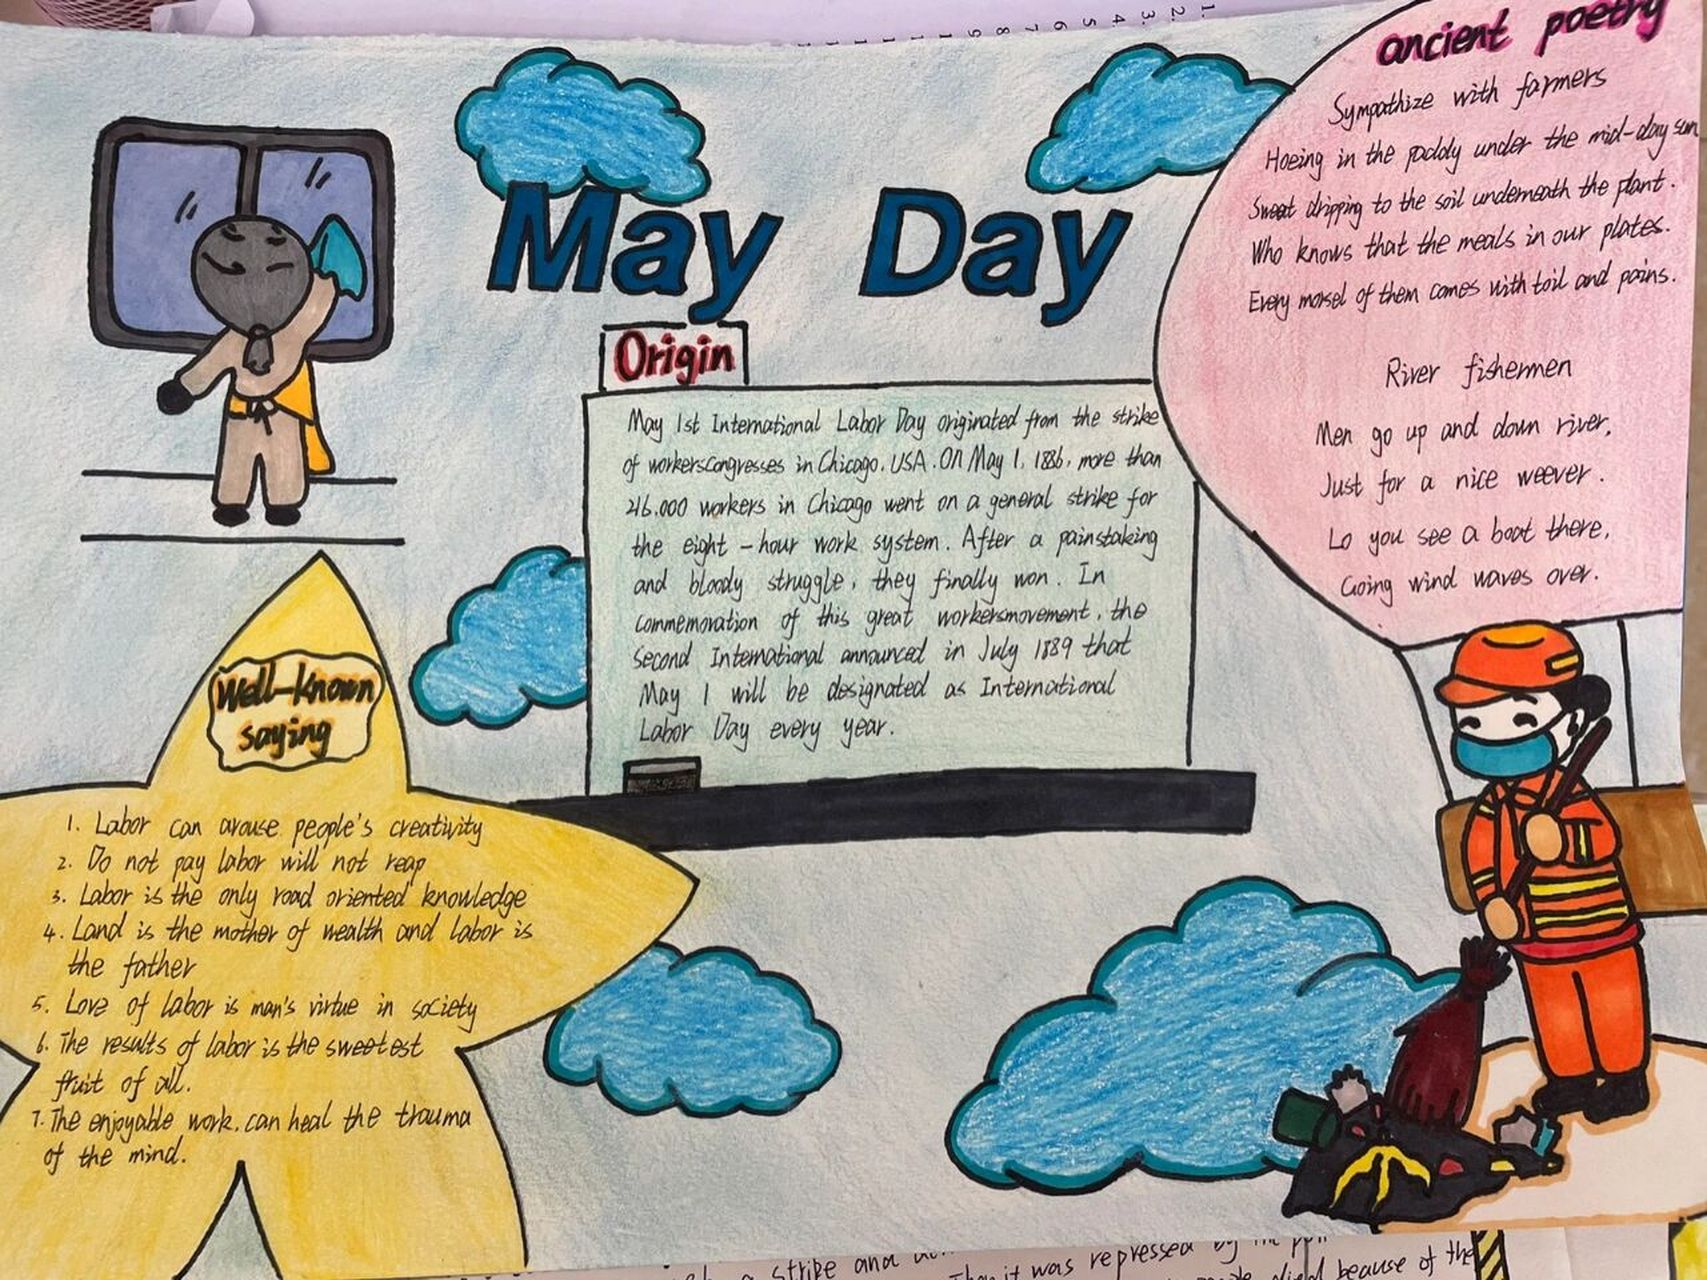 May Day
Origin
May 1st International Labor Day originated from the strike
of workerscongresses in Chicago, USA. On May 1, 1886, more than
216,000 workers in Chicago went on a general strike for
the eight-hour work system. After a painstaking
and bloody struggle, they finally won. In
commemoration of this great workersmovement, the
Second International announced in July 1889 that
May 1 will be designated as International
Labor Day every year.
Well-known
saying
1. Labor can arouse people's creativity
2. Do not pay labor will not reap
3. Labor is the only road oriented knowledge
4. Land is the mother of wealth and labor is
the father
5. Love of labor is man's virtue in society
6. The results of labor is the sweetest
fruit of all.
7. The enjoyable work, can heal the trauma
of the mind.
ancient poetry
Sympathize with farmers
Hoeing in the paddy under the mid-day sun
Sweat dripping to the soil underneath the plant.
Who knows that the meals in our plates.
Every morsel of them comes with toil and pains.
River fishermen
Men go up and down river,
Just for a nice weever.
Lo you see a boat there,
Going wind waves over.
1. 2. 3. 4 5 6 7 8 9
a strike and
it was repressed by
died because of the